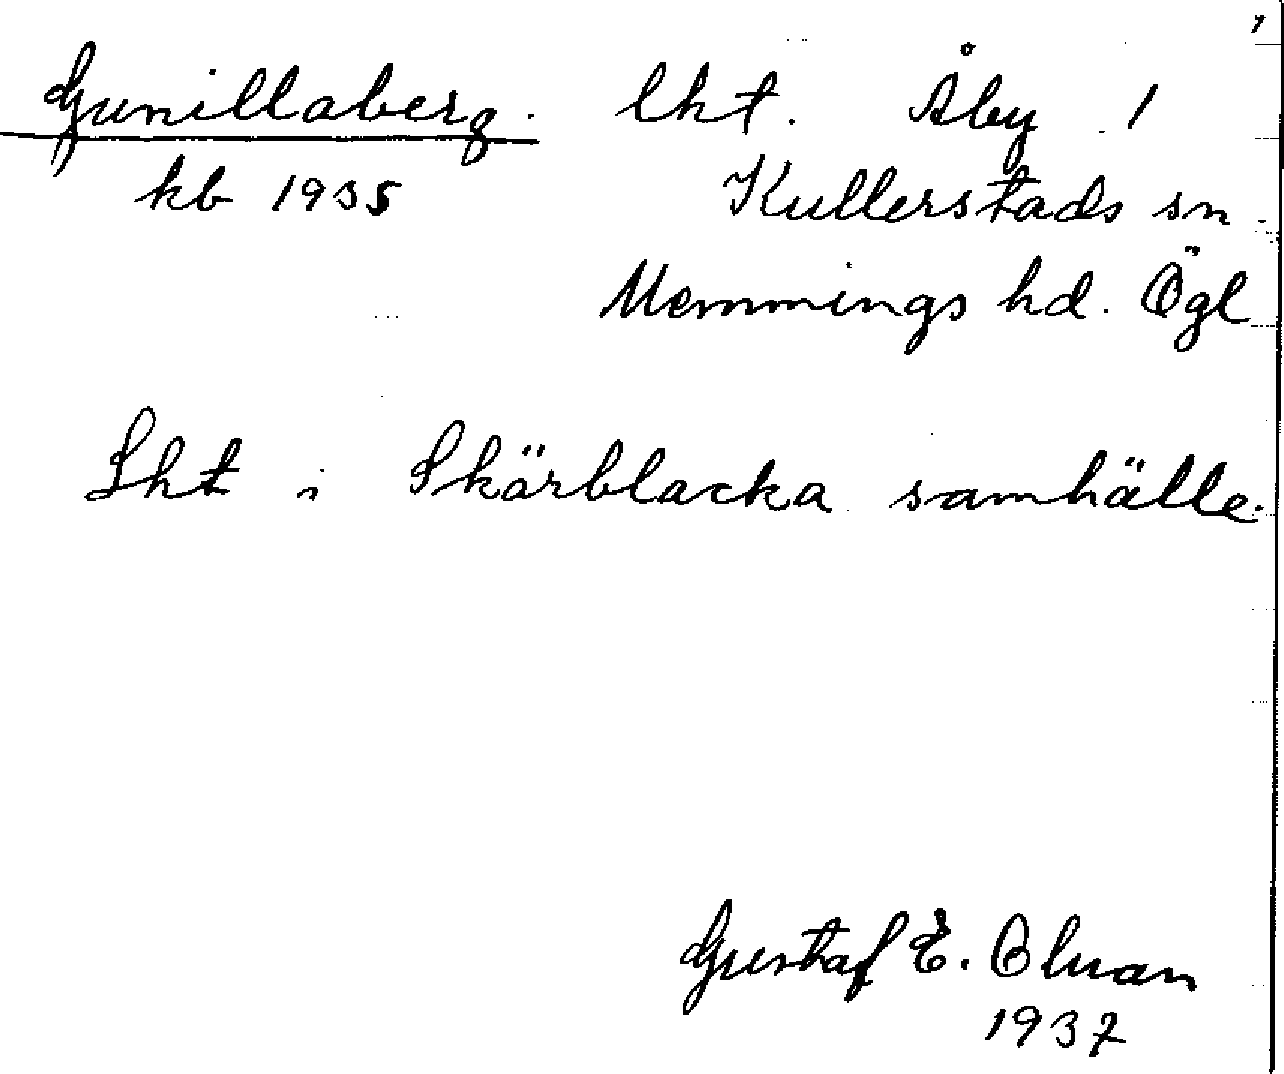 Gunillaberg. lht. Åby 1
kb 1935 Kullerstads sn
Memmings hd. Ögl
Lht i Skärblacka samhälle.
Gustaf E.
1937